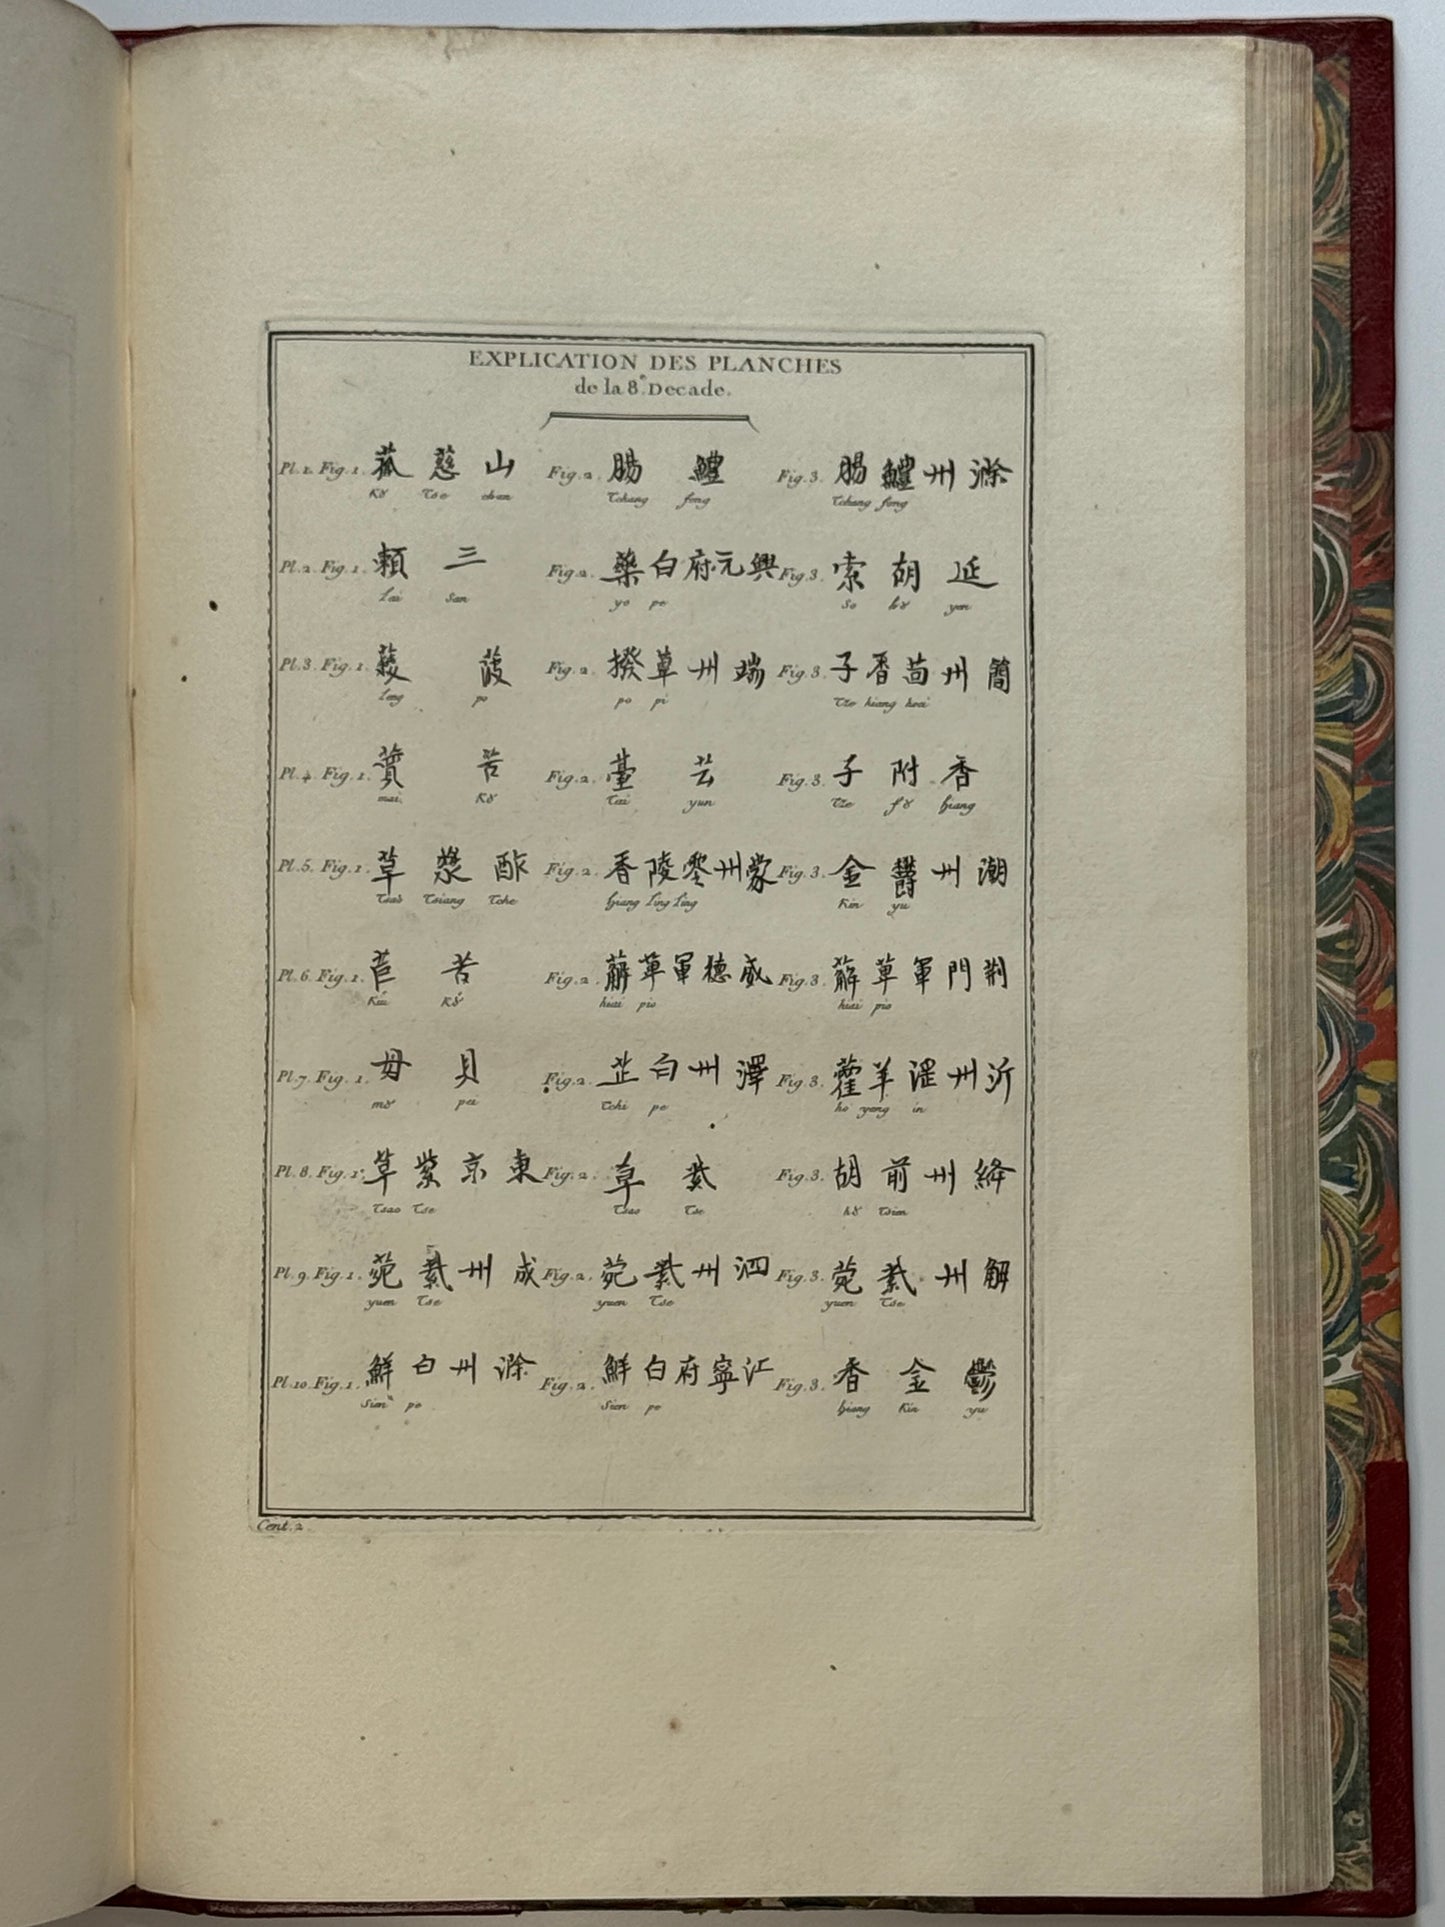 EXPLICATION DES PLANCHES
de la 8.e Decade.
Pl. 1. Fig. 1. 菰 慈 山 Fig. 2. 腸 鱧 Fig. 3. 腸 鱧 州 滁
Kȣ Tse chan Tchang fong Tchang fong
Pl. 2. Fig. 1. 頼 三 Fig. 2. 藥 白 府 元 興 Fig. 3. 索 胡 延
Lai San yo pe So hȣ yen
Pl. 3. Fig. 1. 薐 菠 Fig. 2. 撥 草 州 瑞 Fig. 3. 子 香 茴 州 簡
Leng po po pi Tze hiang hoei
Pl. 4. Fig. 1. 蕒 苦 Fig. 2. 薹 芸 Fig. 3. 子 附 香
mai Kȣ Tai yun Tze fȣ hiang
Pl. 5. Fig. 1. 草 漿 酢 Fig. 2. 香 陵 零 州 蒙 Fig. 3. 金 欝 州 潮
Tsao Tsiang Tche hiang Ling Ling Kin yu
Pl. 6. Fig. 1. 苣 苦 Fig. 2. 薢 草 軍 德 威 Fig. 3. 薢 草 軍 門 荆
Kiu Kȣ hiai pio hiai pio
Pl. 7. Fig. 1. 母 貝 Fig. 2. 芷 白 州 澤 Fig. 3. 藿 羊 淫 州 沂
mȣ pei Tchi pe ho yang in
Pl. 8. Fig. 1. 草 紫 京 東 Fig. 2. 草 紫 Fig. 3. 胡 前 州 絳
Tsao Tse Tsao Tse hȣ Tsien
Pl. 9. Fig. 1. 菀 紫 州 成 Fig. 2. 菀 紫 州 泗 Fig. 3. 菀 紫 州 解
yuen Tse yuen Tse yuen Tse
Pl. 10. Fig. 1. 鮮 白 州 滁 Fig. 2. 鮮 白 府 寧 江 Fig. 3. 香 金 鬱
Sien pe Sien pe hiang Kin yu
Cent. 2.